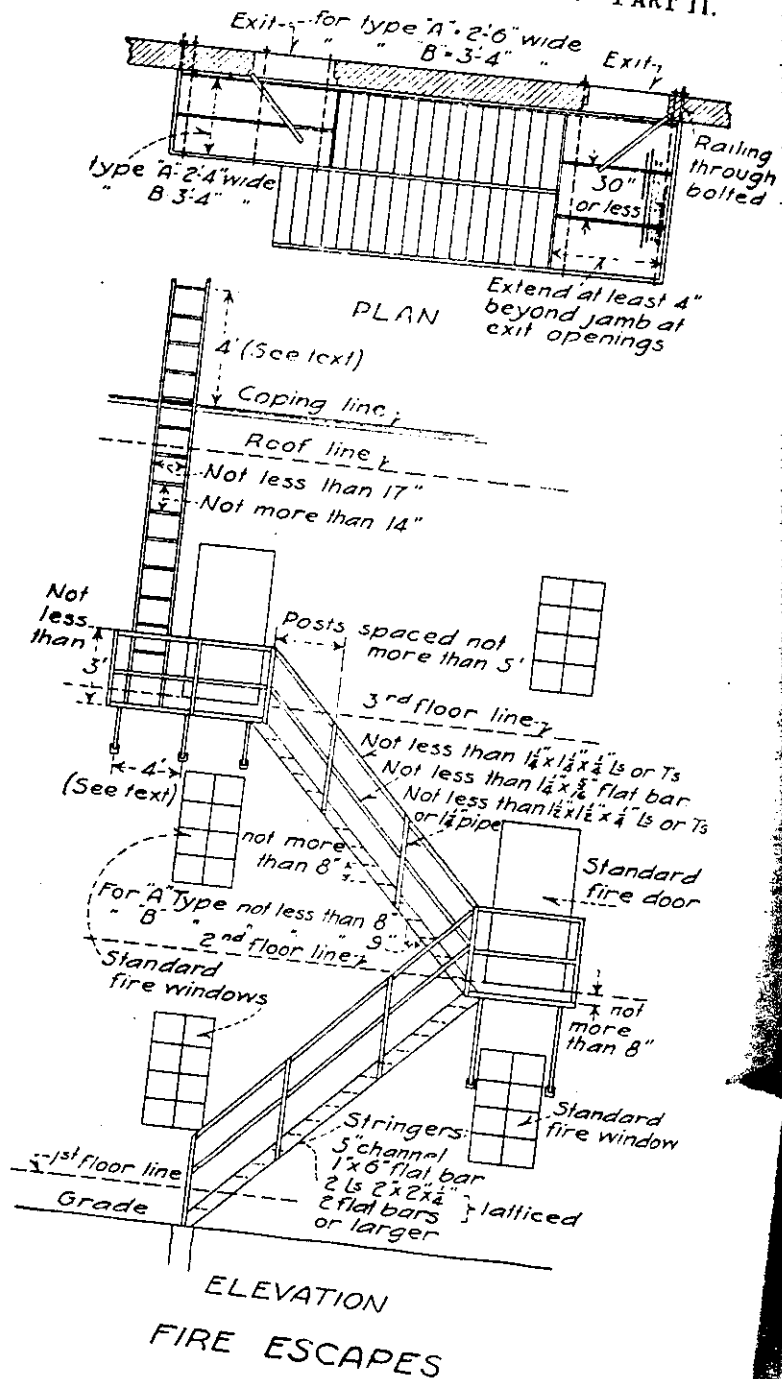 PART II.
Exit
for type "A" = 2'-6" wide
" " B = 3'-4" "
Exit
type "A" 2'-4" wide
" B 3'-4" "
30"
or less
Railing
through
bolted
Extend at least 4"
beyond jamb at
exit openings
PLAN
4' (See text)
Coping line
Roof line
Not less than 17"
Not more than 14"
Not
less
than
3'
Posts spaced not
more than 5'
3rd floor line
4'
(See text)
Not less than 1¼" x 1¼" x ¼" Ls or Ts
Not less than 1¼" x 5/16" flat bar
Not less than 1½" x 1½" x ¼" Ls or Ts
or 1¼" pipe
not more
than 8"
For "A" Type not less than 8"
" B " " " 9"
2nd floor line
Standard
fire door
Standard
fire windows
not
more
than 8"
Standard
fire window
Stringers:
5" channel
1" x 6" flat bar
2 Ls 2" x 2" x ¼"
2 flat bars
or larger
latticed
1st floor line
Grade
ELEVATION
FIRE ESCAPES